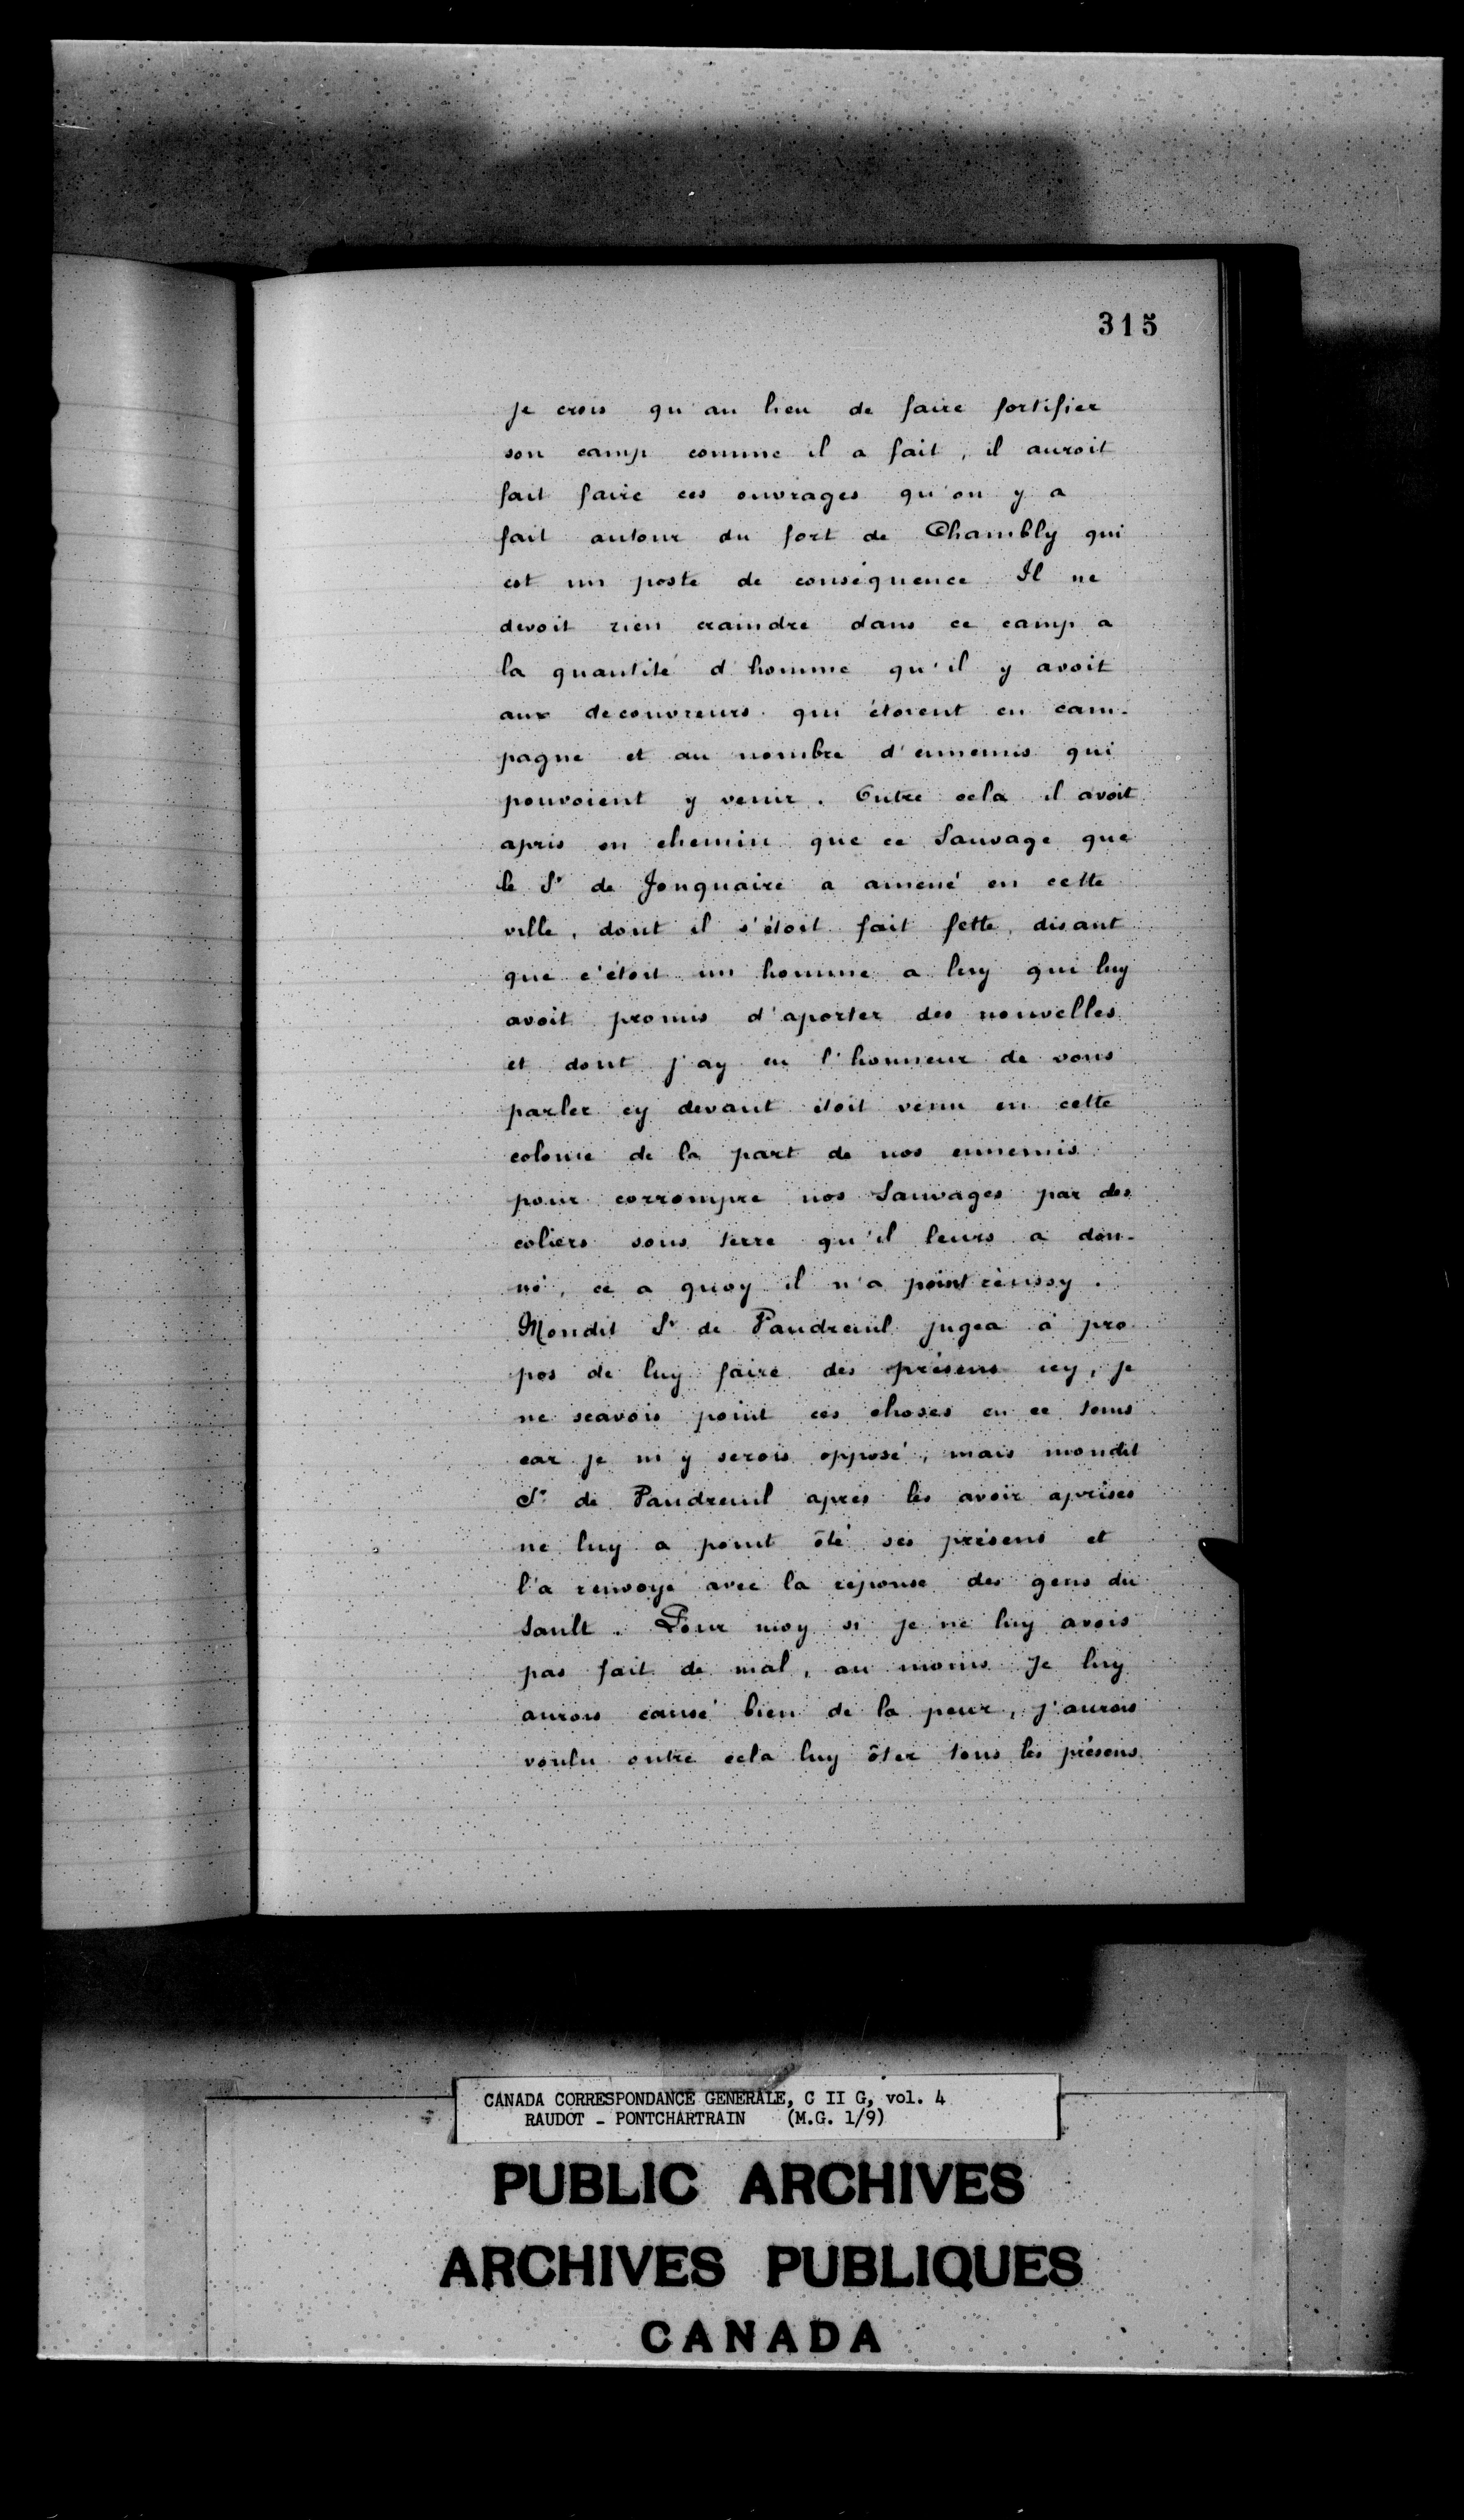 315
je crois qu'au lieu de faire fortifier
son camp comme il a fait, il auroit
fait faire ces ouvrages qu'on y a
fait autour du fort de Chambly qui
est un poste de conséquence Il ne
devoit rien craindre dans ce camp a
la quantité d'homme qu'il y avoit
aux decouvreurs qui étoient en cam-
pagne et au nombre d'ennemis qui
pouvoient y venir. Outre cela il avoit
apris en chemin que ce Sauvage que
le Sr de Jonquaire a amené en cette
ville, dont il s'étoit fait fette, disant
que c'étoit un homme a luy qui luy
avoit promis d'aporter des nouvelles
et dont j'ay eu l'honneur de vous
parler cy devant étoit venu en cette
colonie de la part de nos ennemis
pour corrompre nos Sauvages par des
coliers sous terre qu'il leurs a don-
né, ce a quoy il n'a point réussy.
Mondit Sr de Vaudreuil jugea à pro
pos de luy faire des présens icy, je
ne scavois point ces choses en ce tems
car je m'y serois opposé, mais mondit
Sr de Vaudreuil après les avoir aprises
ne luy a point ôté ses présens et
l'a renvoyé avec la réponse des gens du
Sault. Pour moy si je ne luy avois
pas fait de mal, au moins je luy
aurois causé bien de la peur, j'aurois
voulu outre cela luy ôter tous les présens
CANADA CORRESPONDANCE GENERALE, C II G, vol. 4
RAUDOT - PONTCHARTRAIN (M.G. 1/9)
PUBLIC ARCHIVES
ARCHIVES PUBLIQUES
CANADA